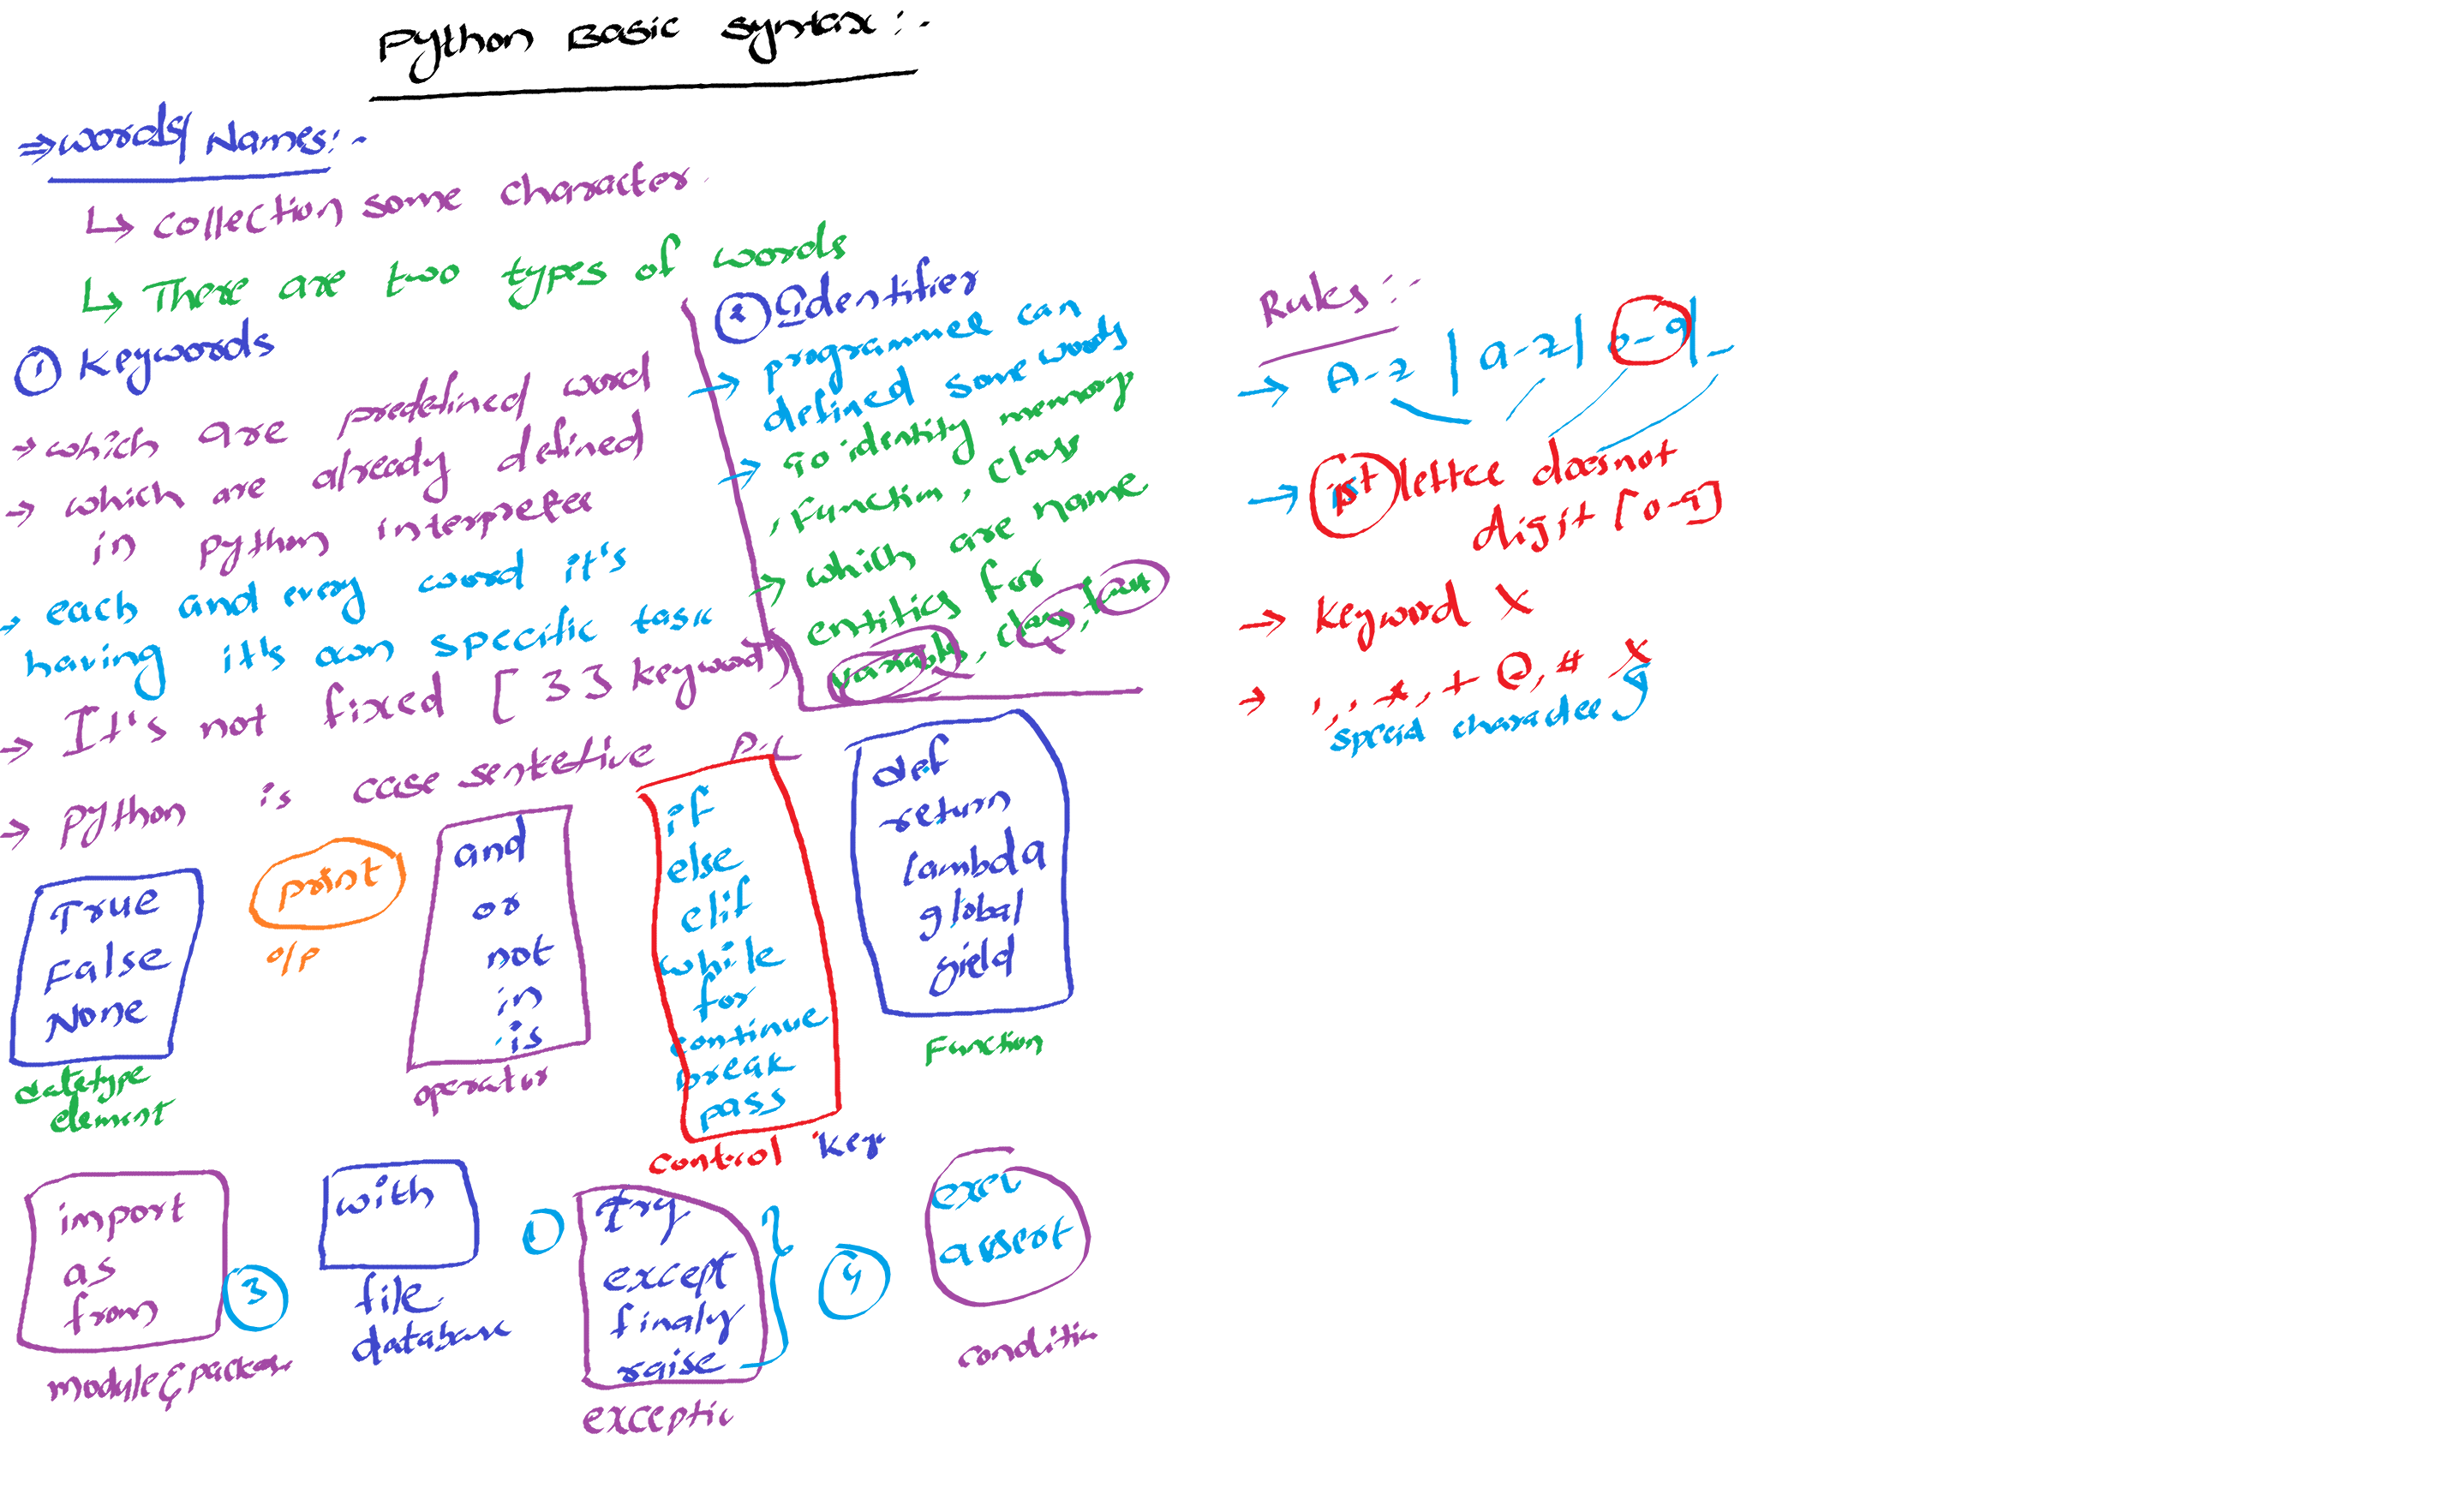 Python Basic Syntax:-
⇒ words/ Names:-
↳ collection some character
↳ There are two types of words
① Keywords
→ which are predefined word
→ which are already defined
in python interpreter
→ each and every word it's
having it's own specific task
→ It's not fixed [33 keyword]
→ Python is case sentetive P.L
② Identifier
→ programmer can
defined some words
→ To identify memory
, Function, class
→ which are name
entities for
variable, class, fun
Rules:-
→ A-z | a-z | 0-9 | _
→ 1st letter doesnot
digit [0-9]
→ keyword X
→ , ; * , + @, # X
special character
True
False
None
datatype
element
print
o/p
and
or
not
in
is
operator
if
else
elif
while
for
continue
break
pass
control key
def
return
lambda
global
yield
Function
import
as
from
③
module &
with
file
database
①
Try
except
finaly
raise
④
exceptio
assert
conditio